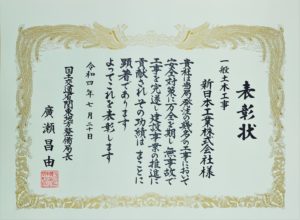 表彰状
一般土木工事
新日本工業株式会社様
貴社は当局発注の幾多の工事において
安全対策に万全を期し無事故で
工事を完遂し建設事業の推進に
貢献されその功績はまことに
顕著であります
よってこれを表彰します
令和四年七月二十日
国土交通省関東地方整備局長
廣瀬昌由